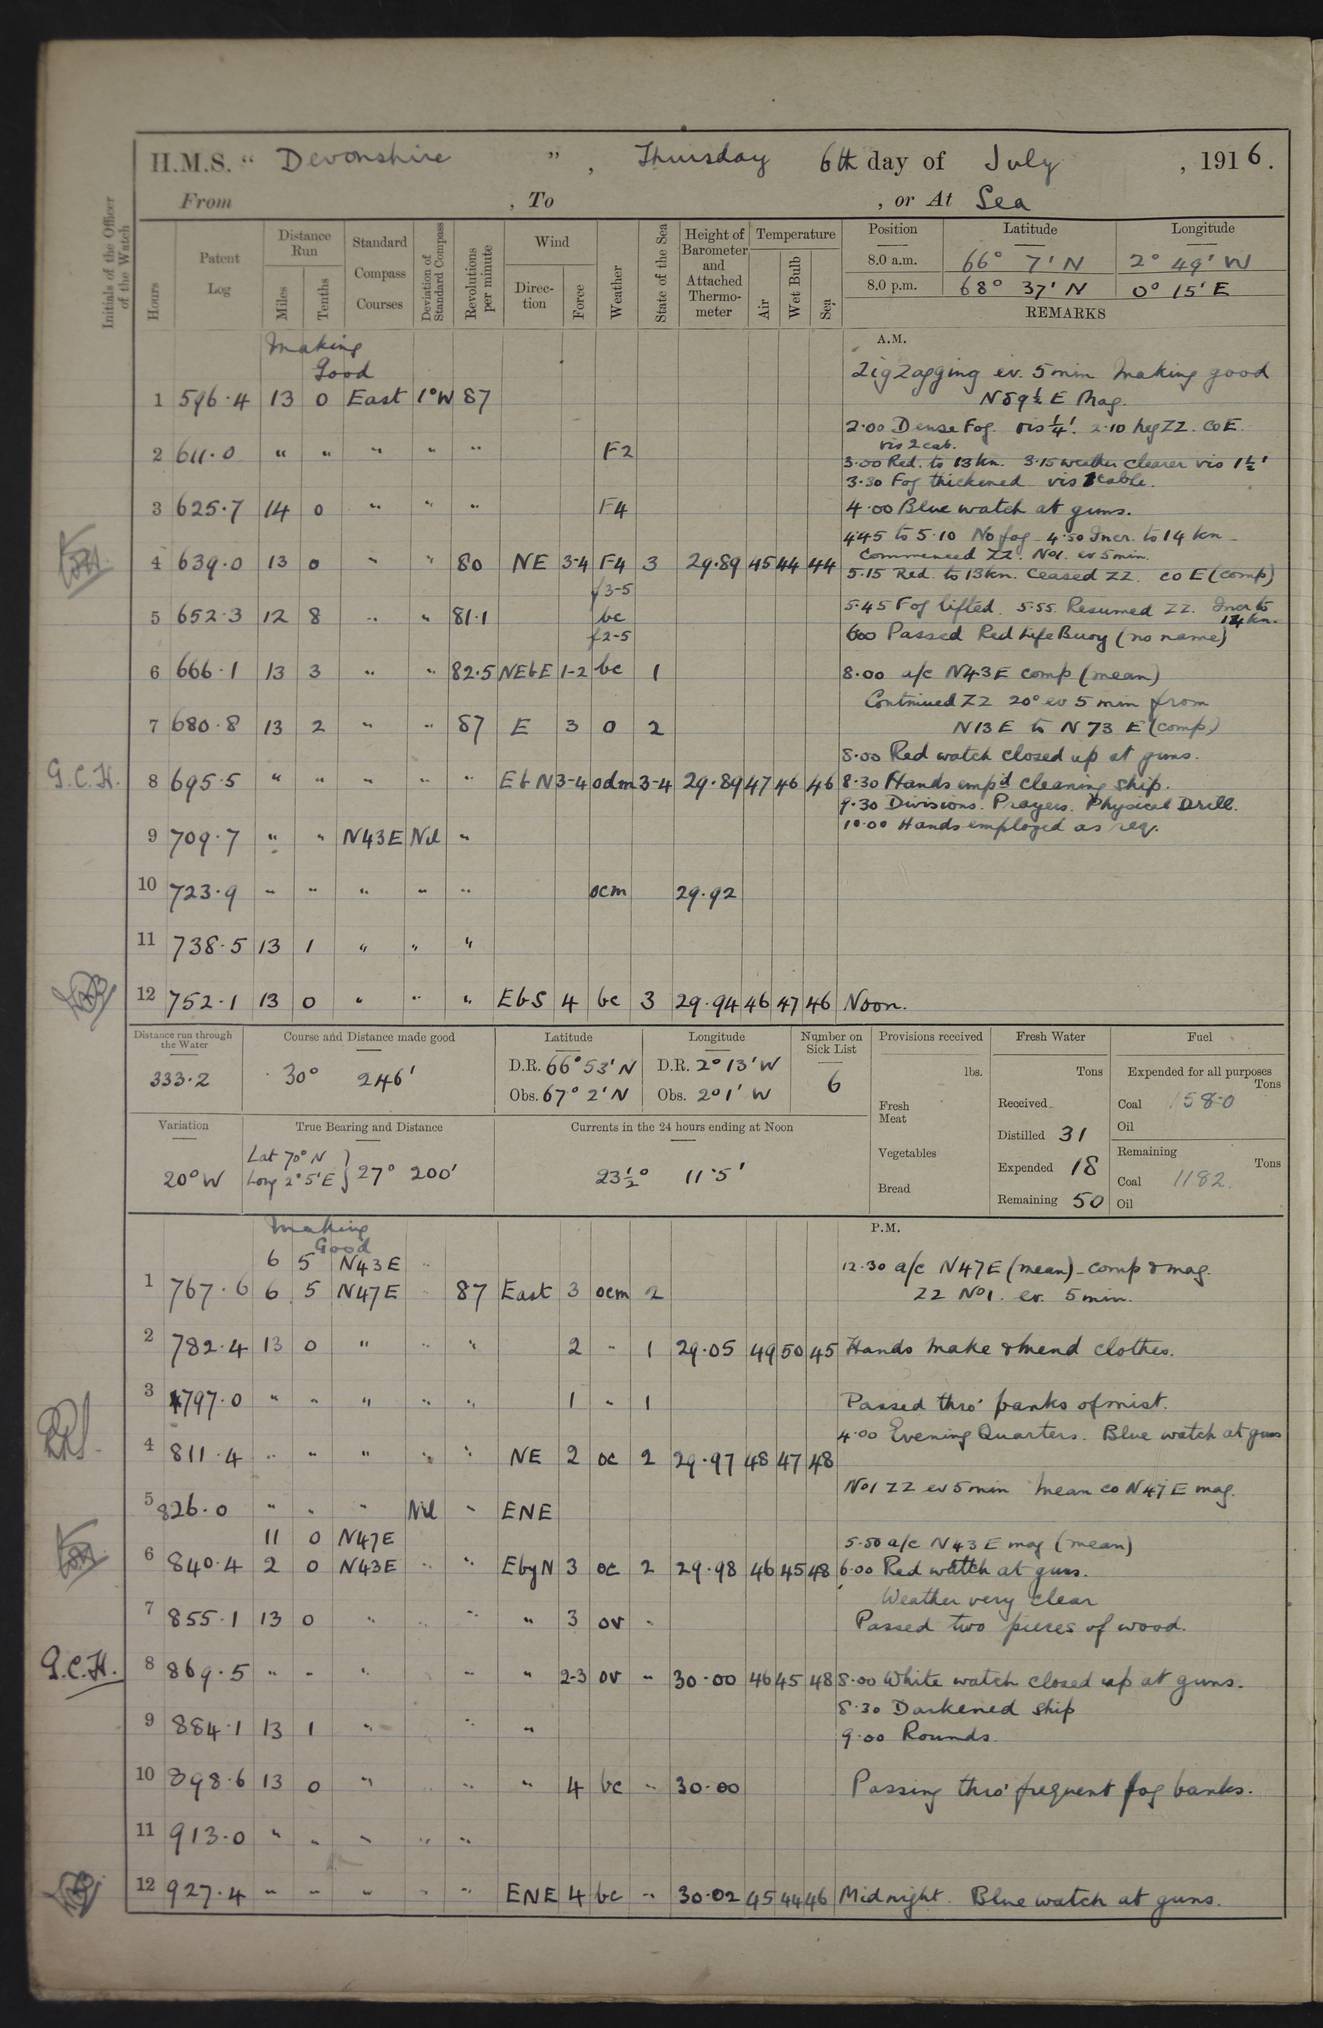 H.M.S. " Devonshire ", Thursday 6th day of July, 1916.
From , To , or At Sea
Initials of the Officer of the Watch
Hours
Patent Log
Distance Run
Miles
Tenths
Standard Compass Courses
Deviation of Standard Compass
Revolutions per minute
Wind
Direction
Force
Weather
State of the Sea
Height of Barometer and Attached Thermometer
Temperature
Air
Wet Bulb
Sea
Position Latitude Longitude
8.0 a.m. 66° 7' N 2° 49' W
8.0 p.m. 68° 37' N 0° 15' E
REMARKS
A.M.
Making Good
Zig Zagging ev. 5 min making good
N 89½ E Mag.
1 596.4 13 0 East 1°W 87
2.00 Dense Fog. vis ¼'. 2.10 neg ZZ. Co E.
vis 2 cab.
2 611.0 " " " " " F2
3.00 Red. to 13 kn. 3.15 weather clearer vis 1½'
3.30 Fog thickened vis 1 cable.
3 625.7 14 0 " " " F4
4.00 Blue watch at guns.
4.45 to 5.10 No fog 4.50 Incr. to 14 kn
Commenced ZZ. No1. ev 5 min.
4 639.0 13 0 " " 80 NE 3-4 F4 3 29.89 45 44 44
5.15 Red. to 13 kn. Ceased ZZ. co E (comp)
f 3-5
5.45 Fog lifted. 5.55. Resumed ZZ. Incr to
14 kn.
5 652.3 12 8 " " 81.1 bc
f 2-5
600 Passed Red Life Buoy (no name)
6 666.1 13 3 " " 82.5 NEbE 1-2 bc 1
8.00 a/c N43E comp (mean)
Continued ZZ 20° ev 5 min from
7 680.8 13 2 " " 87 E 3 o 2
N13E to N 73 E (comp)
8.00 Red watch closed up at guns.
G.C.H. 8 695.5 " " " " " EbN 3-4 odm 3-4 29.89 47 46 46
8.30 Hands emp'd cleaning ship.
9.30 Divisions. Prayers. Physical Drill.
10.00 Hands employed as req.
9 709.7 " " N43E Nil "
10 723.9 " " " " " ocm 29.92
11 738.5 13 1 " " "
12 752.1 13 0 " " " EbS 4 bc 3 29.94 46 47 46 Noon.
Distance run through the Water
333.2
Course and Distance made good
30° 246'
Latitude
D.R. 66° 53' N
Obs. 67° 2' N
Longitude
D.R. 2° 13' W
Obs. 2° 1' W
Number on Sick List
6
Provisions received
lbs.
Fresh Meat
Vegetables
Bread
Fresh Water
Tons
Received
Distilled 31
Expended 18
Remaining 50
Fuel
Expended for all purposes
Tons
Coal 158.0
Oil
Remaining
Tons
Coal 1182
Oil
Variation
20° W
True Bearing and Distance
Lat 70° N
Long 2° 5' E } 27° 200'
Currents in the 24 hours ending at Noon
23½° 11.5'
P.M.
Making Good
6 5 N43E "
12.30 a/c N47E (mean) - comp & mag.
1 767.6 6 5 N47E " 87 East 3 ocm 2
ZZ No1. ev. 5 min.
2 782.4 13 0 " " " 2 " 1 29.05 49 50 45 Hands make & mend clothes.
3 797.0 " " " " " 1 " 1 Passed thro' banks of mist.
4.00 Evening Quarters. Blue watch at guns
4 811.4 " " " " " NE 2 oc 2 29.97 48 47 48
No1 ZZ ev 5 min mean co N47E mag.
5 826.0 " " " Nil " ENE
11 0 N47E
5.50 a/c N 43 E mag (mean)
6 840.4 2 0 N43E " " EbyN 3 oc 2 29.98 46 45 48 6.00 Red watch at guns.
Weather very clear
7 855.1 13 0 " " " " 3 ov "
Passed two pieces of wood.
G.C.H. 8 869.5 " " " " " 2-3 ov " 30.00 46 45 48 8.00 White watch closed up at guns.
8.30 Darkened ship
9 884.1 13 1 " " "
9.00 Rounds.
10 898.6 13 0 " " " " 4 bc " 30.00 Passing thro' frequent fog banks.
11 913.0 " " " " "
12 927.4 " " " " " ENE 4 bc " 30.02 45 44 46 Midnight. Blue watch at guns.